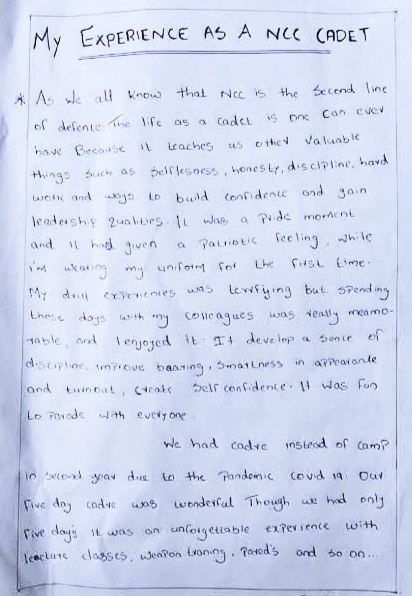 My EXPERIENCE AS A NCC CADET
* As we all know that Ncc is the Second line
of defence. The life as a cadet is one can ever
have Because it teaches us other valuable
things such as selflesness, honesty, discipline, hard
work and ways to build confidence and gain
leadership qualities. It was a Pride moment
and it had given a Patriotic feeling, while
i'm wearing my uniform for the first time.
My drill experiences was terrifying but spending
those days with my colleagues was really memo-
rable, and I enjoyed it. It develop a sence of
discipline, improve bearing, smartness in appearance
and turnout, create self confidence. It was fun
to Parade with everyone.
We had cadre instead of camp
in second year due to the Pandemic covid 19. Our
five day cadre was wonderful Though we had only
five days it was an unforgettable experience with
leacture classes, weapon traning, Pared's and so on....